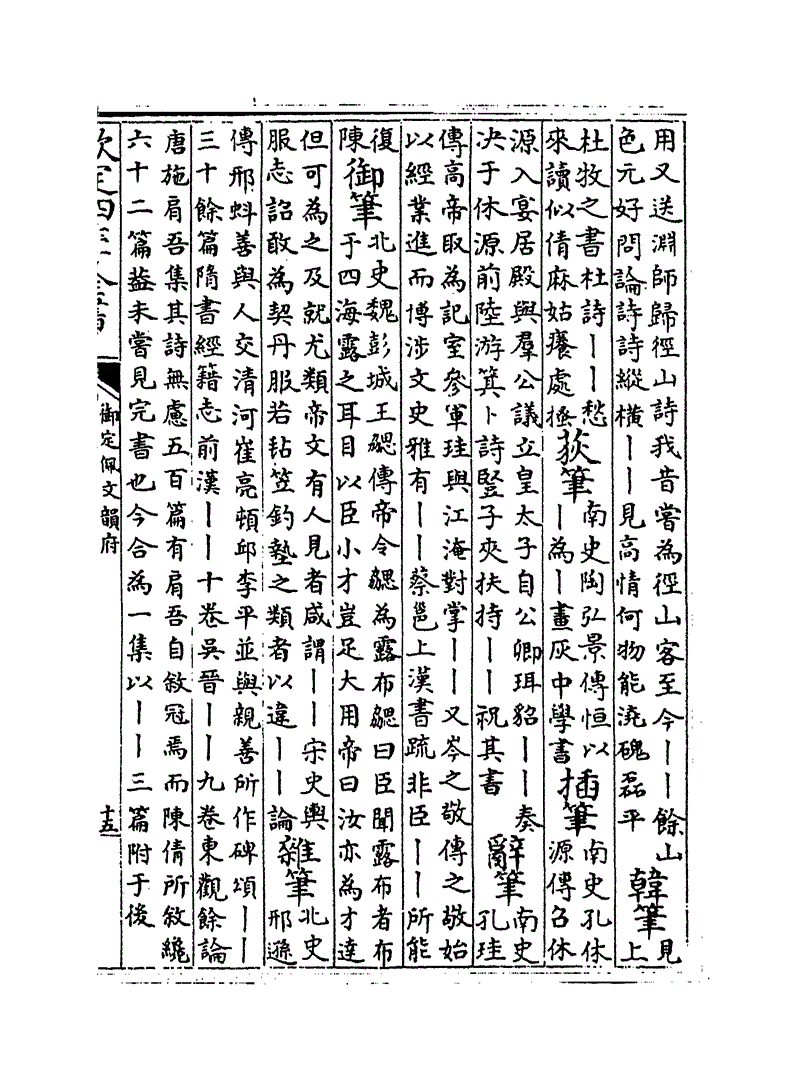 用又送淵師歸徑山詩我昔嘗為徑山客至今｜｜餘山
色元好問論詩詩縱橫｜｜見高情何物能澆磈磊平
韓筆
見
上
杜牧之書杜詩｜｜愁
來讀似倩麻姑癢處搔
荻筆
南史陶弘景傳恒以
｜為｜畫灰中學書
插筆
南史孔休
源傳召休
源入宴居殿與羣公議立皇太子自公卿珥貂｜｜奏
决于休源前陸游箕卜詩豎子夾扶持｜｜祝其書
辭筆
南史
孔珪
傳高帝取為記室參軍珪與江淹對掌｜｜又岑之敬傳之敬始
以經業進而博涉文史雅有｜｜蔡邕上漢書疏非臣｜｜所能
復
陳
御筆
北史魏彭城王勰傳帝令勰為露布勰曰臣聞露布者布
于四海露之耳目以臣小才豈足大用帝曰汝亦為才達
但可為之及就尤類帝文有人見者咸謂｜｜宋史輿
服志詔敢為契丹服若毡笠釣墪之類者以違｜｜論
雜筆
北史
邢遜
傳邢蚪善與人交清河崔亮頓邱李平並與親善所作碑頌｜｜
三十餘篇隋書經籍志前漢｜｜十卷吳晉｜｜九卷東觀餘論
唐施肩吾集其詩無慮五百篇有肩吾自敘冠焉而陳倩所敘纔
六十二篇葢未嘗見完書也今合為一集以｜｜三篇附于後
欽定四庫全書
御定佩文韻府
十五